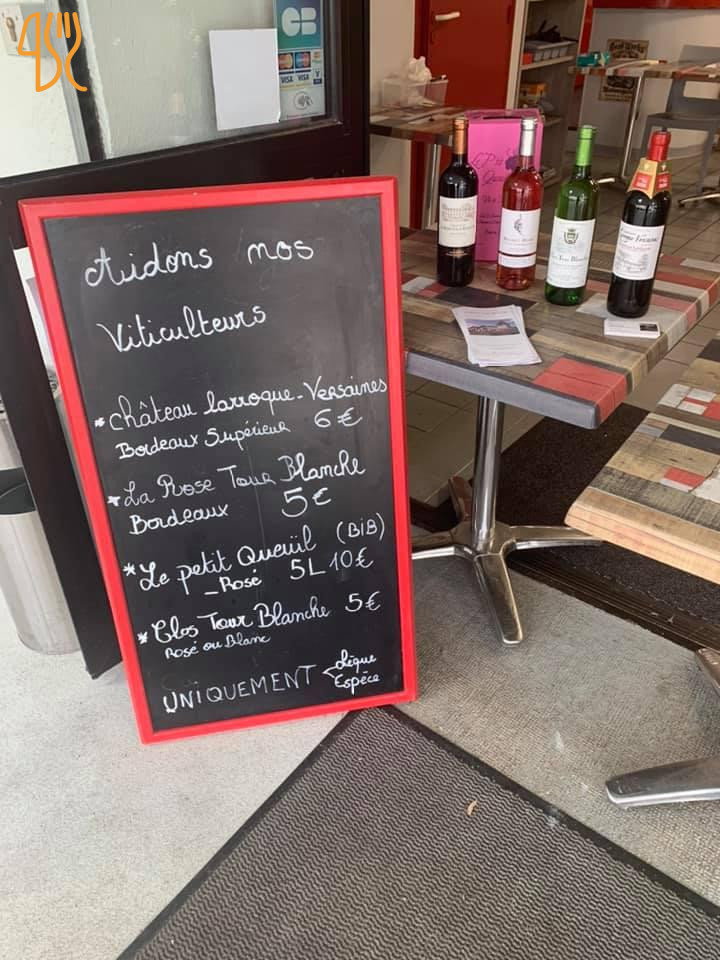 CB
VISA
VISA
V
Aidons nos
Viticulteurs
* château larroque-Versaines
Bordeaux Supérieur 6€
* La Rose Tour Blanche
Bordeaux 5€
* Le petit Queuïl (BiB)
- Rosé 5L 10€
* Clos Tour Blanche 5€
Rosé ou Blanc
UNIQUEMENT chèque
Espèce
Le P'tit